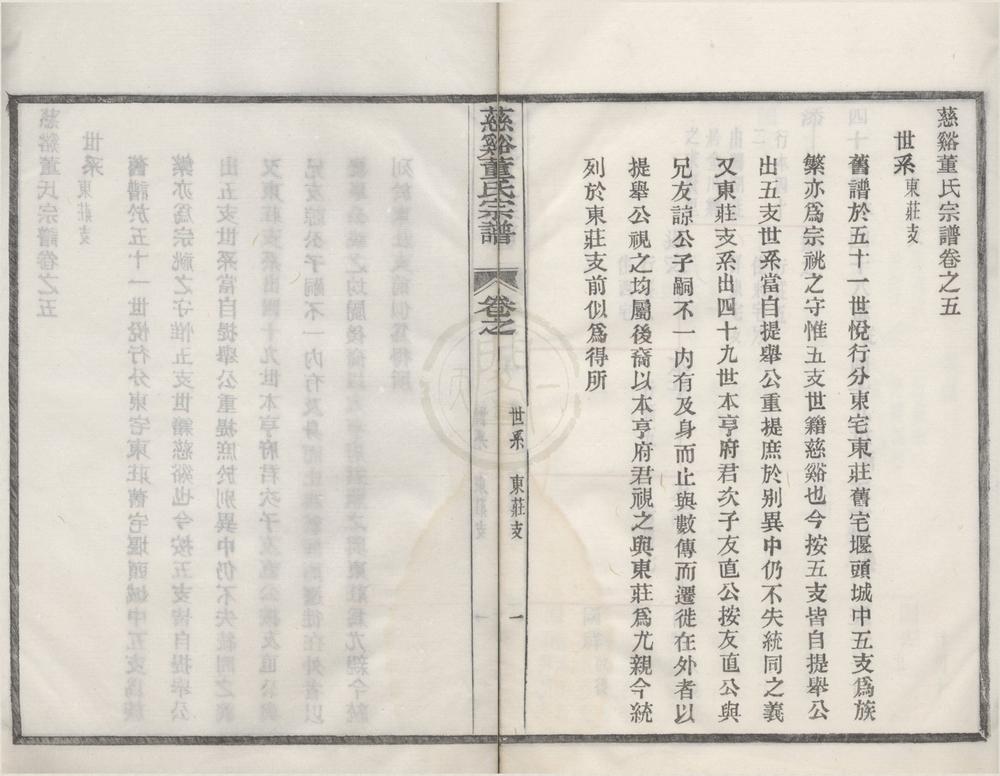 慈谿董氏宗譜卷之五
世系東莊支
舊譜於五十一世悅行分東宅東莊舊宅堰頭城中五支爲族
繁亦爲宗祧之守惟五支世籍慈谿也今按五支皆自提舉公
出五支世系當自提舉公重提庶於別異中仍不失統同之義
又東莊支系出四十九世本亨府君次子友直公按友直公與
兄友諒公子嗣不一內有及身而止與數傳而遷徙在外者以
提舉公視之均屬後裔以本亨府君視之與東莊爲尤親今統
列於東莊支前似爲得所
慈谿董氏宗譜
卷之
世系
東莊支
一